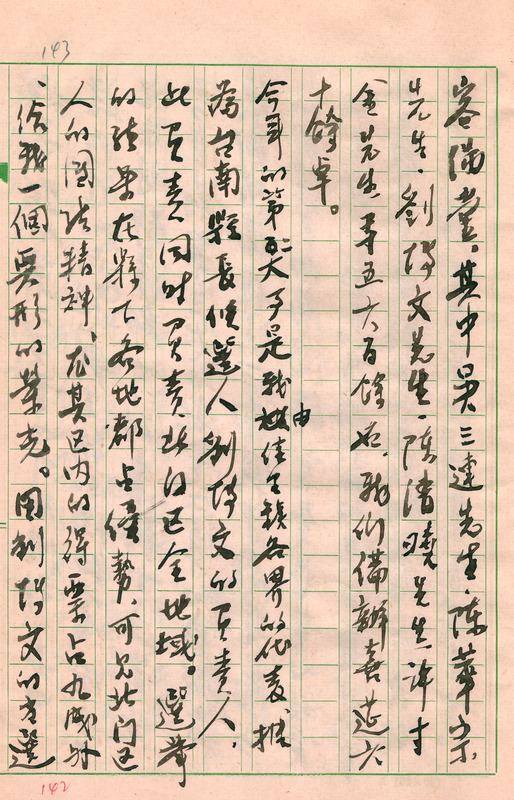 143
客滿堂。其中吳三連先生、陳華宗
先生、劉博文先生、陳清曉先生、許寸
金先生等五六百餘名、我們備辦喜筵六
十餘桌。
今年的第二大事是我由佳里鎮各界的代表、推
為台南縣長候選人劉博文的負責人、
此負責同時負責北門區全地域。選舉
的結果在縣下各地都占優勢、可見北门区
人的團結精神、尤其区内的得票占九成外
、給我一個無形的榮光。因劉博文的当選
142